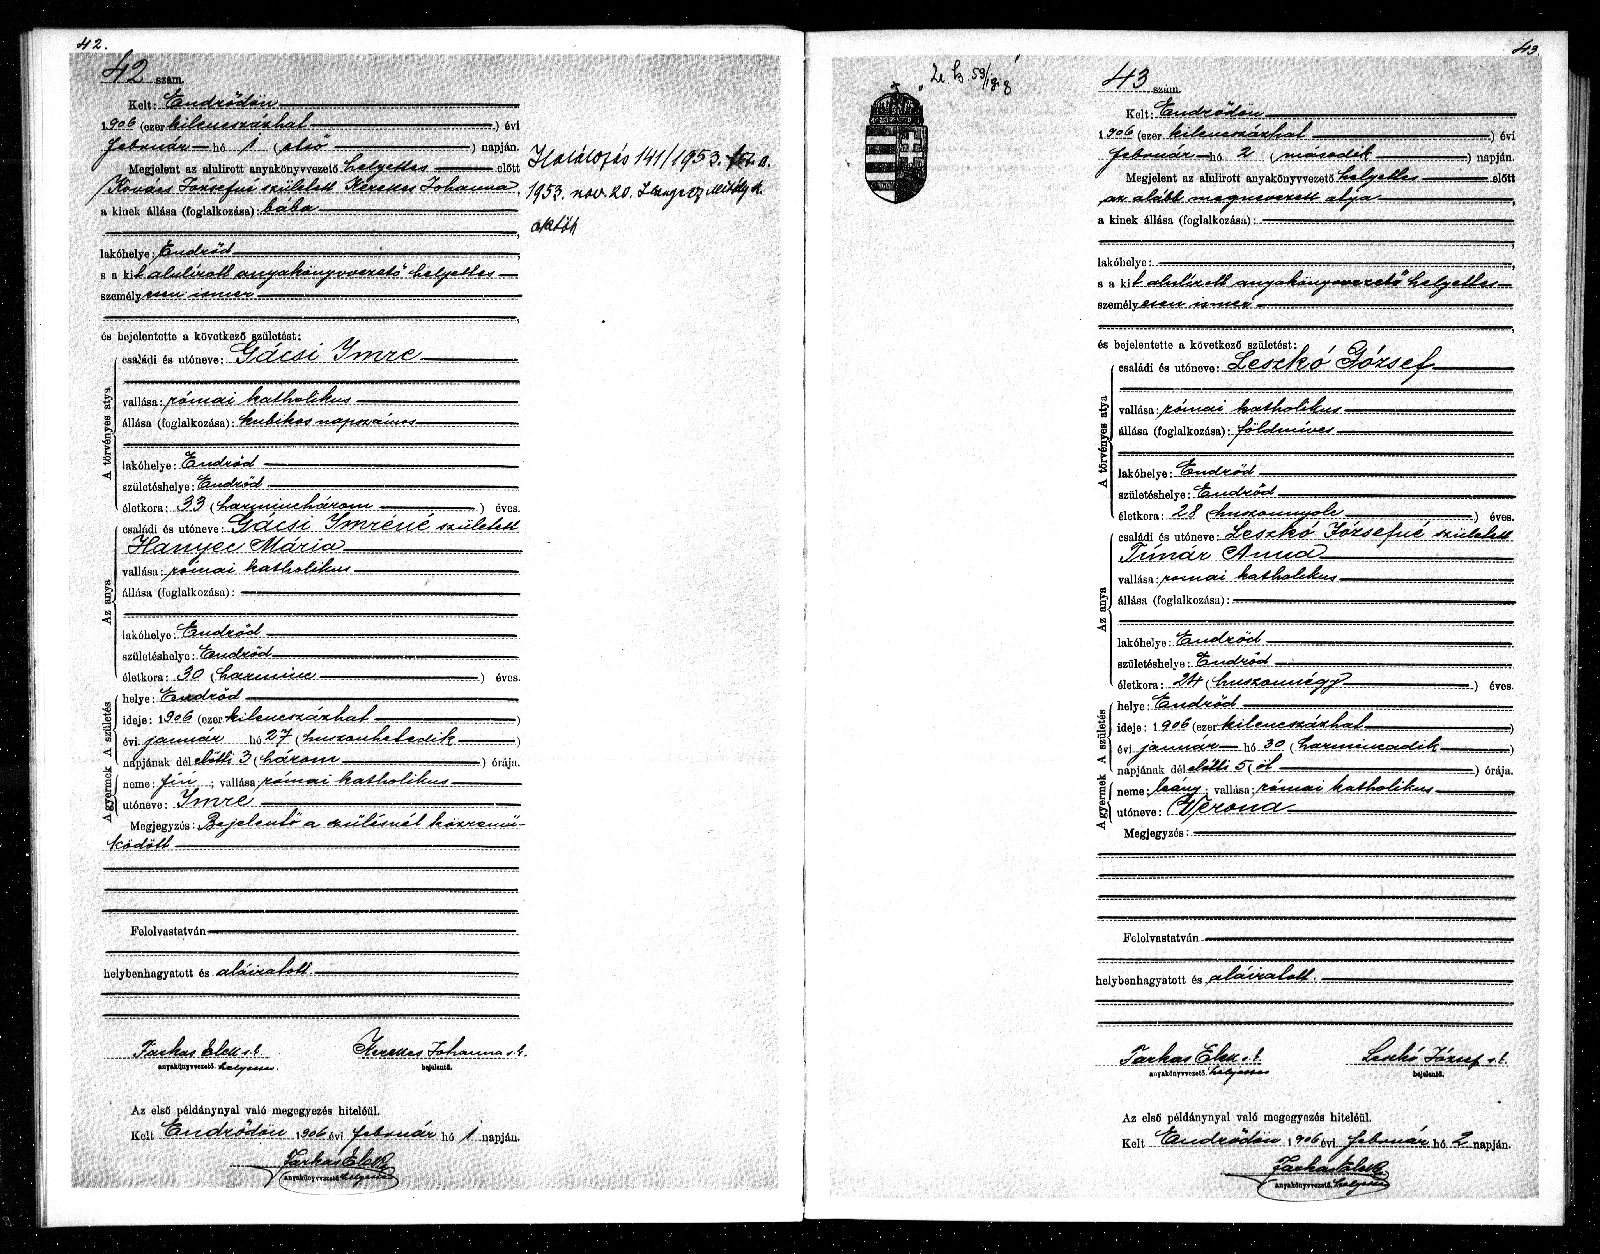 42.
42 szám.
Kelt: Endrődön
1906 (ezer kilencszázhat ) évi
február hó 1 ( első ) napján.
Megjelent az alulirott anyakönyvvezető helyettes előtt
Kovács Józsefné született Kerekes Johanna,
a kinek állása (foglalkozása): bába
lakóhelye: Endrőd
s a kit alulírott anyakönyvvezető helyettes
személyesen ismer
és bejelentette a következő születést:
A törvényes atya
családi és utóneve: Gácsi Imre
vallása: római katholikus
állása (foglalkozása): kubikos napszámos
lakóhelye: Endrőd
születéshelye: Endrőd
életkora: 33 ( harminchárom ) éves.
Az anya
családi és utóneve: Gácsi Imréné született
Hanyec Mária
vallása: római katholikus
állása (foglalkozása):
lakóhelye: Endrőd
születéshelye: Endrőd
életkora: 30 ( harminc ) éves.
A születés
helye: Endrőd
ideje: 1906 (ezer kilencszázhat )
évi január hó 27 ( huszonhetedik )
napjának dél előtti 3 ( három ) órája.
A gyermek
neme: fiú ; vallása: római katholikus
utóneve: Imre
Megjegyzés: Bejelentő a szülésnél közremű-
ködött
Felolvastatván
helybenhagyatott és aláiratott
Farkas Elek s.k. Kerekes Johanna s.k.
anyakönyvvezető helyettes bejelentő.
Az első példánynyal való megegyezés hiteléül.
Kelt Endrődön 1906 évi február hó 1 napján.
Farkas Elek
anyakönyvvezető helyettes
Halálozás 141/1953.
1953. nov. 20. Mihály
43
43 szám.
Kelt: Endrődön
1906 (ezer kilencszázhat ) évi
február hó 2 ( második ) napján.
Megjelent az alulirott anyakönyvvezető helyettes előtt
az alább megnevezett atya
a kinek állása (foglalkozása):
lakóhelye:
s a kit alulírott anyakönyvvezető helyettes
személyesen ismer
és bejelentette a következő születést:
A törvényes atya
családi és utóneve: Leszkó József
vallása: római katholikus
állása (foglalkozása): földmíves
lakóhelye: Endrőd
születéshelye: Endrőd
életkora: 28 ( huszonnyolc ) éves.
Az anya
családi és utóneve: Leszkó Józsefné született
Tímár Anna
vallása: római katholikus
állása (foglalkozása):
lakóhelye: Endrőd
születéshelye: Endrőd
életkora: 24 ( huszonnégy ) éves.
A születés
helye: Endrőd
ideje: 1906 (ezer kilencszázhat )
évi január hó 30 ( harmincadik )
napjának dél előtti 5 ( öt ) órája.
A gyermek
neme: leány ; vallása: római katholikus
utóneve: Verona
Megjegyzés:
Felolvastatván
helybenhagyatott és aláiratott
Farkas Elek s.k. Leszkó József s.k.
anyakönyvvezető helyettes bejelentő.
Az első példánynyal való megegyezés hiteléül.
Kelt Endrődön 1906 évi február hó 2 napján.
Farkas Elek
anyakönyvvezető helyettes